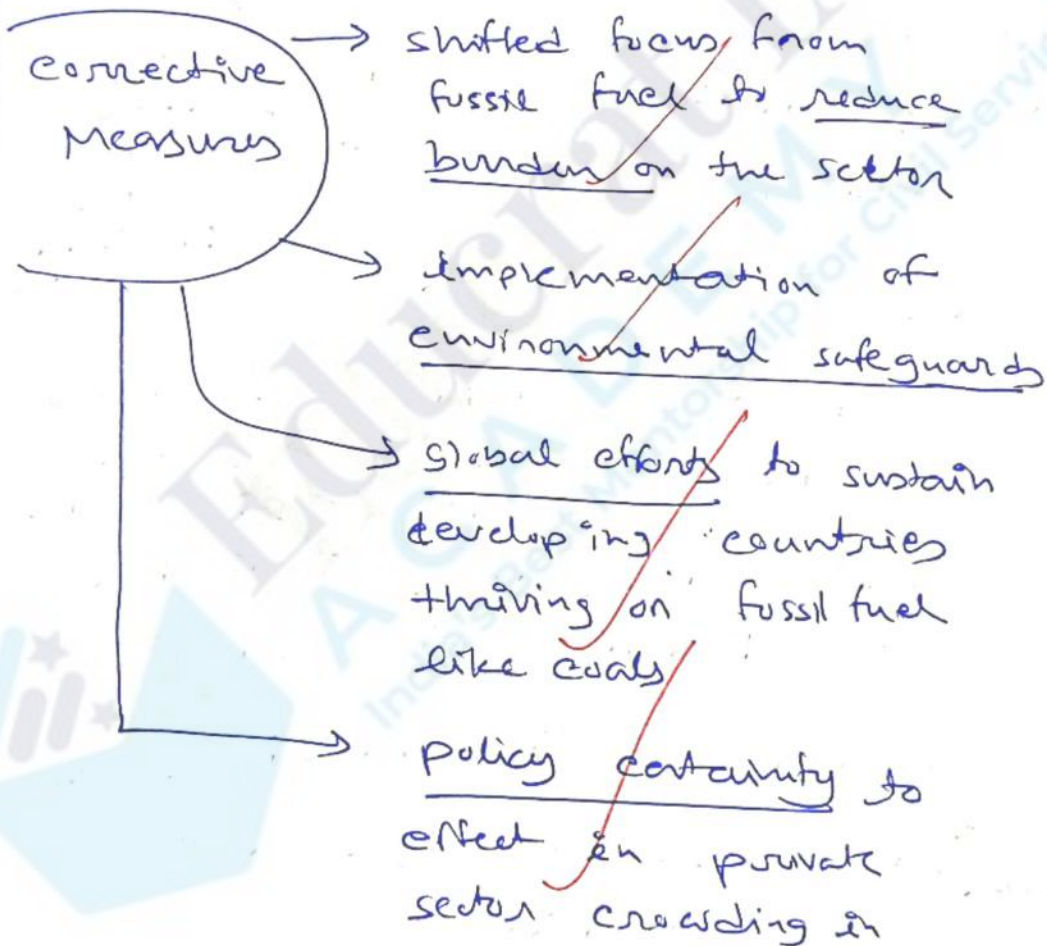 corrective
Measures
shifted focus from
fussil fuel to reduce
burden on the sector
implementation of
environmental safeguards
Global efforts to sustain
developing countries
thriving on fossil fuel
like coals
policy certainty to
effect in private
sector crowding in
Educrat
ACADEMY
India's Best Mentorship for Civil Servic